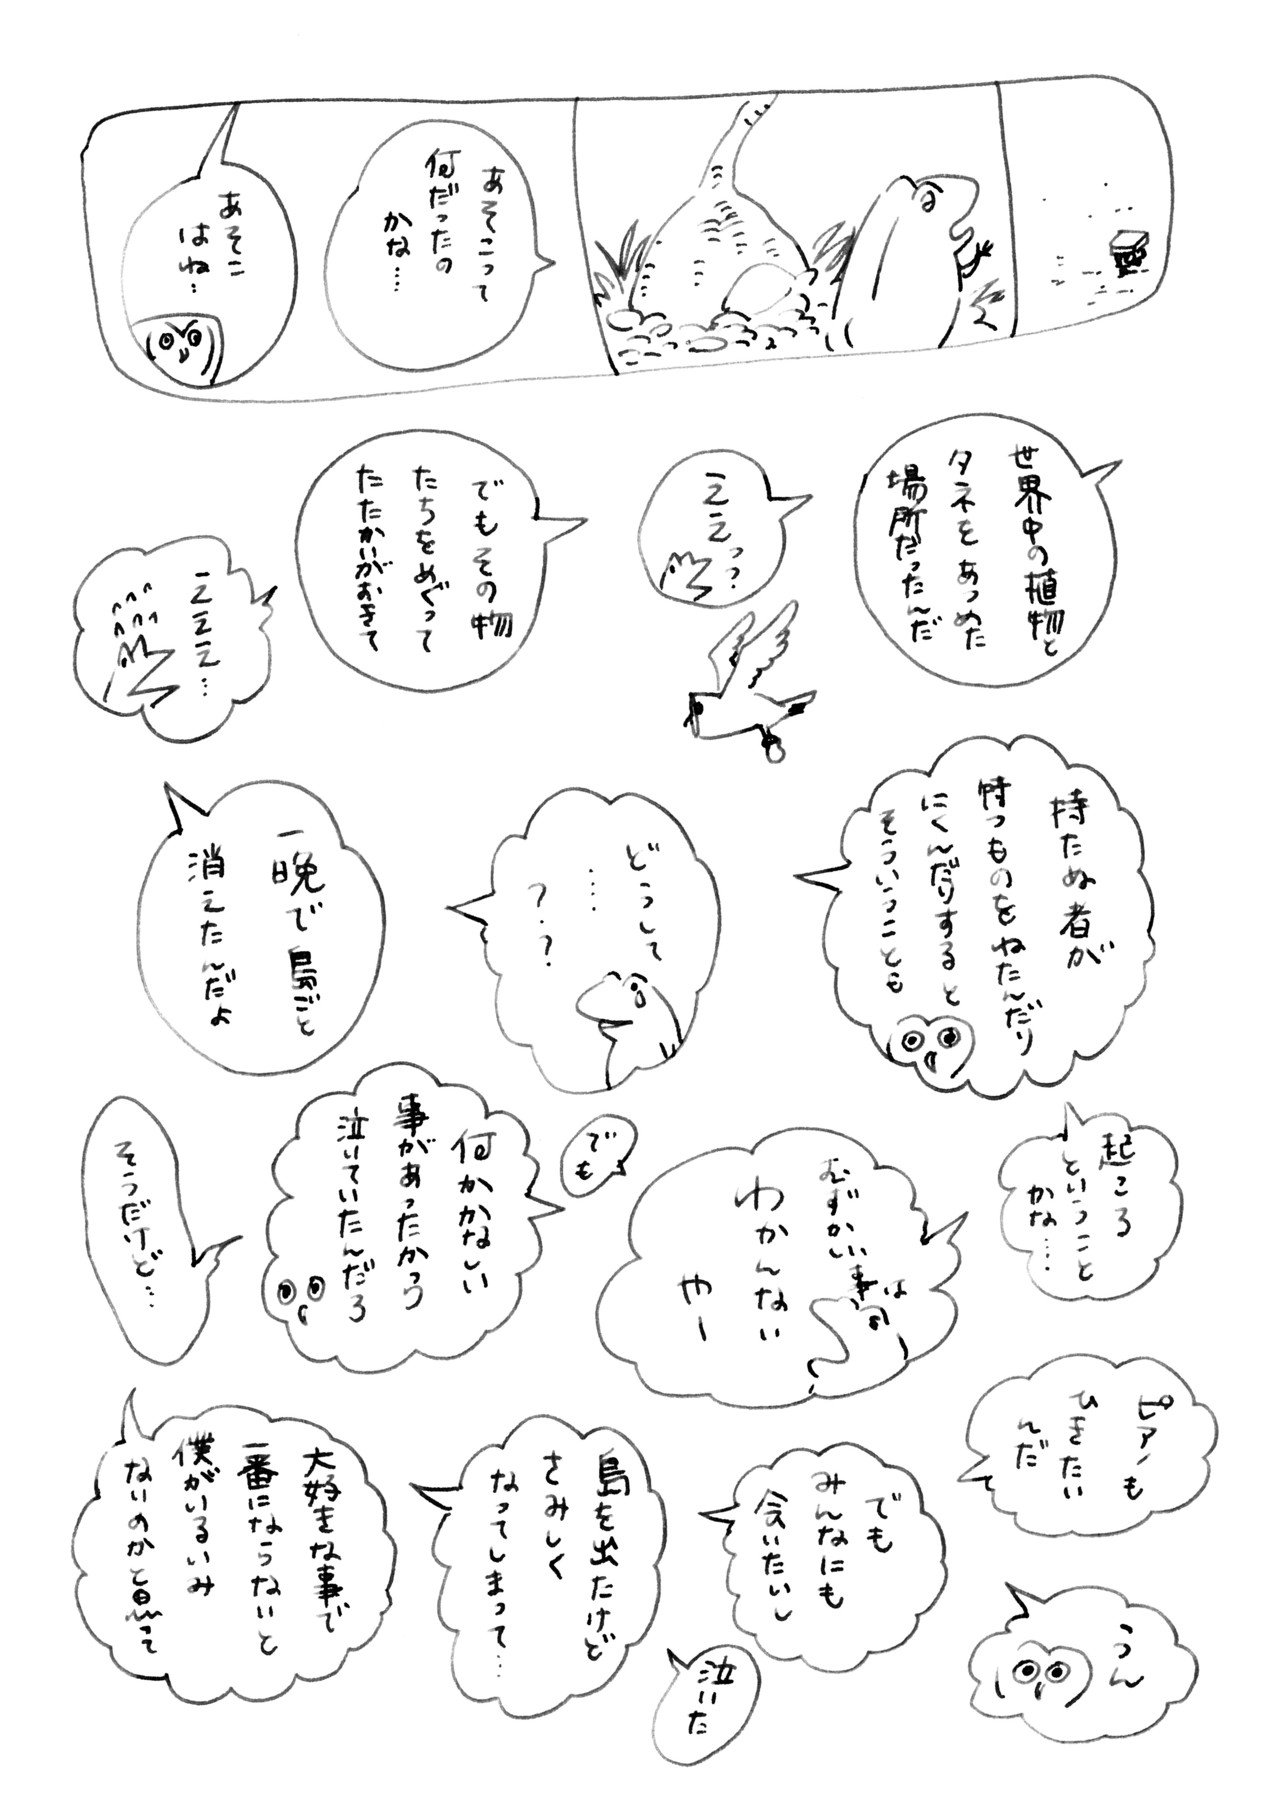 あそこって
何だったの
かな…
あそこ
はね…
世界中の植物と
タネをあつめた
場所だったんだ
ええっ?
でもその物
たちをめぐって
たたかいがおきて
えええ…
持たぬ者が
持つものをねたんだり
にくんだりすると
そういうことも
どうして
……
?.?
一晩で島ごと
消えたんだよ
起こる
ということ
かな…
むずかしい事は
わかんない
やー
でも
何かかなしい
事があったかつ
泣いていたんだろ
そうだけど…
ピアノも
ひきたい
んだ
うん
でも
みんなにも
会いたいし
泣いた
島を出たけど
さみしく
なってしまって…
大好きな事で
一番にならないと
僕がいるいみ
ないのかと思って